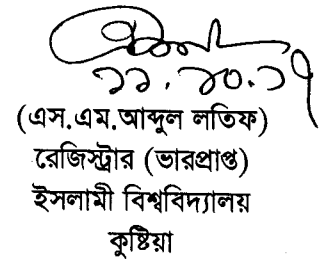 ১১.১০.১৭
(এস.এম.আব্দুল লতিফ)
রেজিস্ট্রার (ভারপ্রাপ্ত)
ইসলামী বিশ্ববিদ্যালয়
কুষ্টিয়া